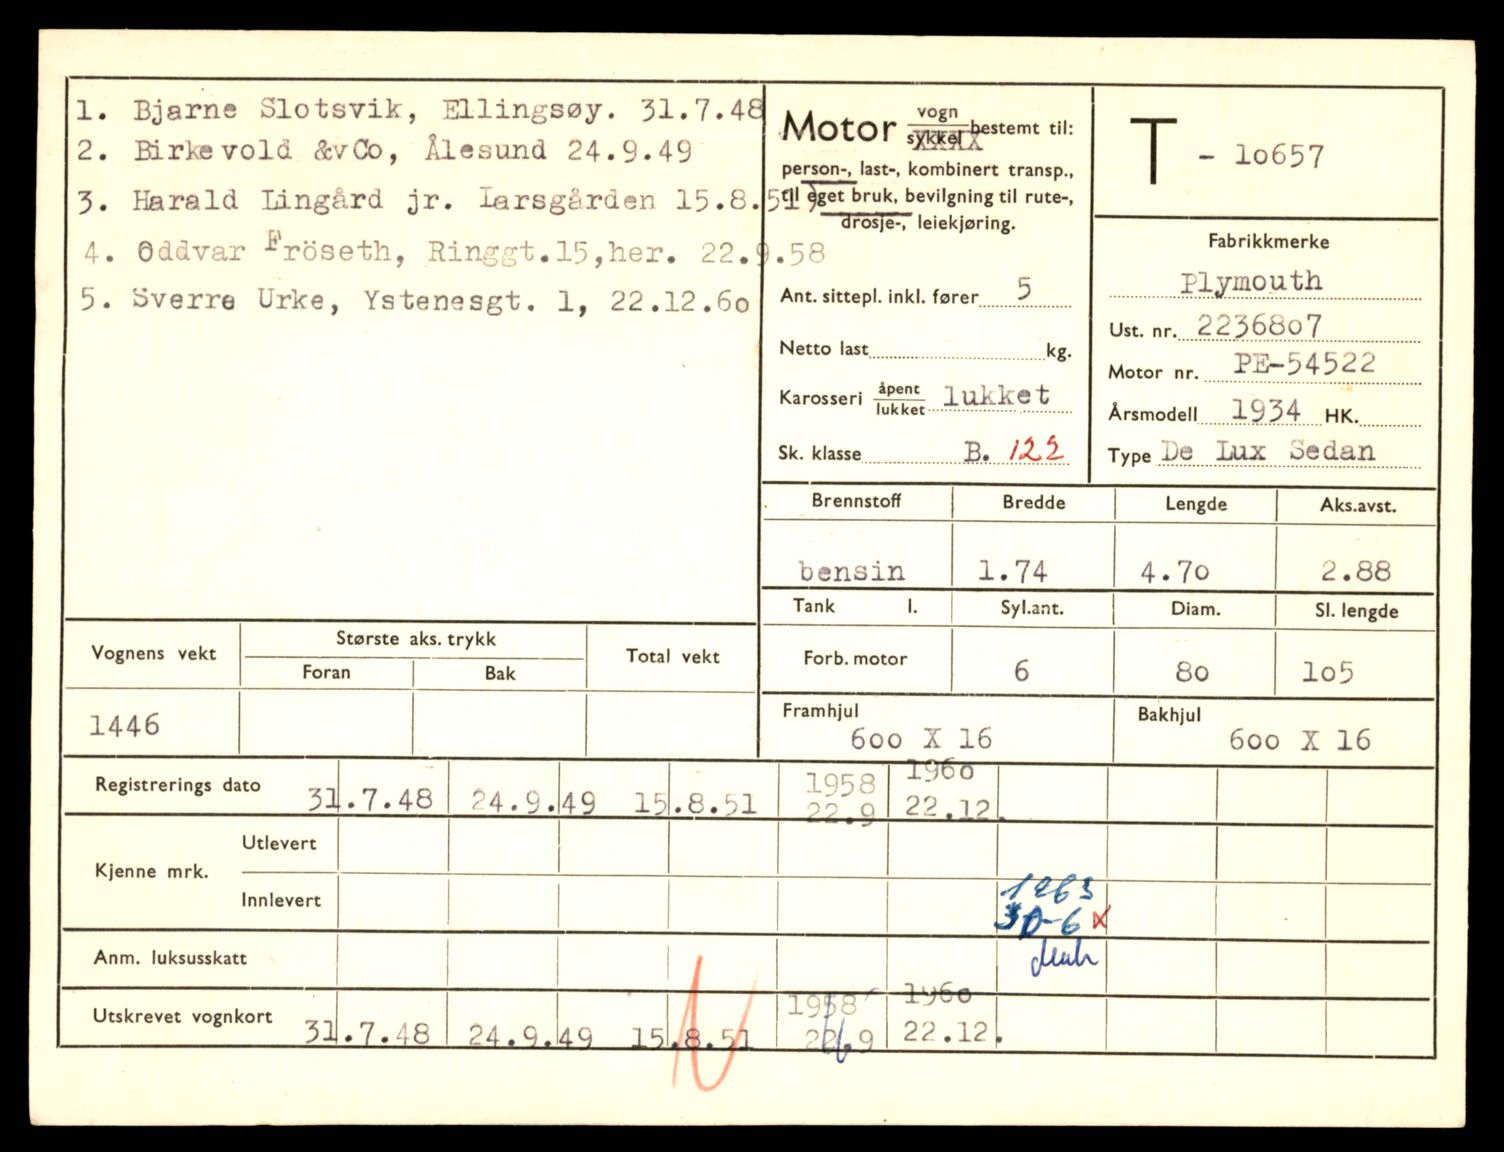 1. Bjarne Slotsvik, Ellingsøy. 31.7.48
2. Birkevold &vCo, Ålesund 24.9.49
3. Harald Lingård jr. Larsgården 15.8.51)
4. Oddvar Fröseth, Ringgt.15,her. 22.9.58
5. Sverre Urke, Ystenesgt. 1, 22.12.6o
Motor vogn
sykkel bestemt til:
person-, last-, kombinert transp.,
til eget bruk, bevilgning til rute-,
drosje-, leiekjøring.
Ant. sittepl. inkl. fører 5
Netto last kg.
Karosseri åpent
lukket lukket
Sk. klasse B. 122
T - 1o657
Fabrikkmerke
Plymouth
Ust. nr. 22368o7
Motor nr. PE-54522
Årsmodell 1934 HK.
Type De Lux Sedan
Brennstoff Bredde Lengde Aks.avst.
bensin 1.74 4.7o 2.88
Tank l. Syl.ant. Diam. Sl. lengde
Forb. motor 6 8o 1o5
Vognens vekt Største aks. trykk Total vekt
Foran Bak
1446
Framhjul Bakhjul
6oo X 16 6oo X 16
Registrerings dato 31.7.48 24.9.49 15.8.51 1958 22.9 196o 22.12.
Kjenne mrk. Utlevert
Innlevert 1963
30-6 x
Anm. luksusskatt
Utskrevet vognkort 31.7.48 24.9.49 15.8.51 1958 22.9 196o 22.12.